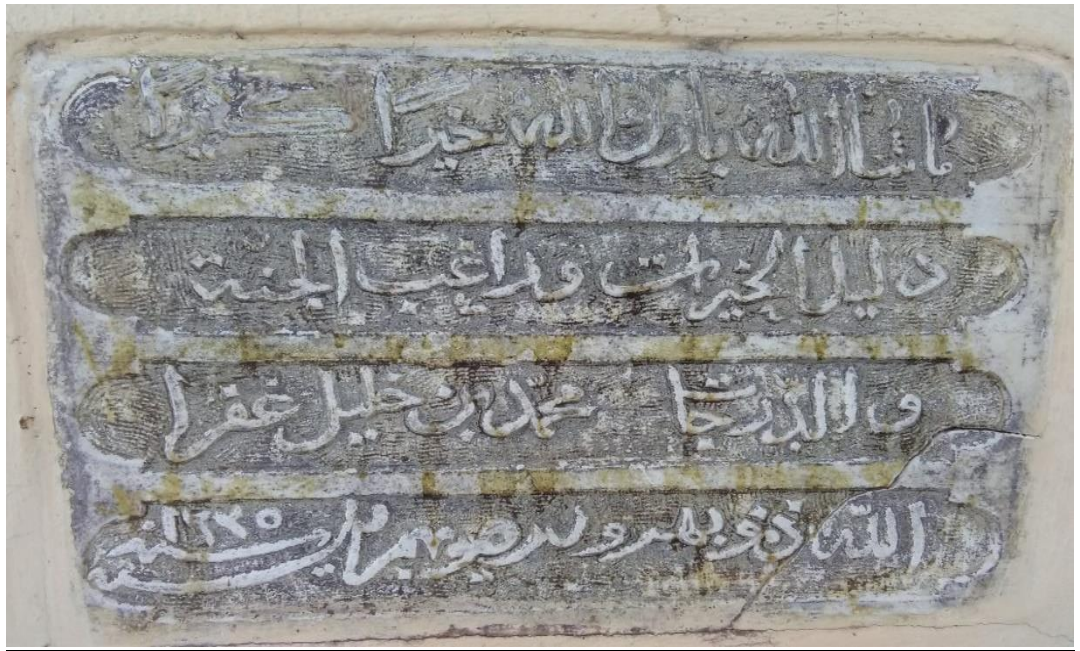 ماشاالله بارك الله خيرا كثيرا
دليل الخيرات وراغب الجنة
و الدرجات محمد بن خليل غفرا
الله ذنوبهم و سنة